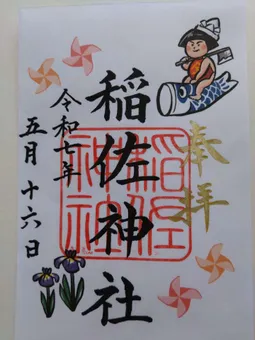 奉拝
稲佐神社
稲佐神社
令和七年
五月十六日